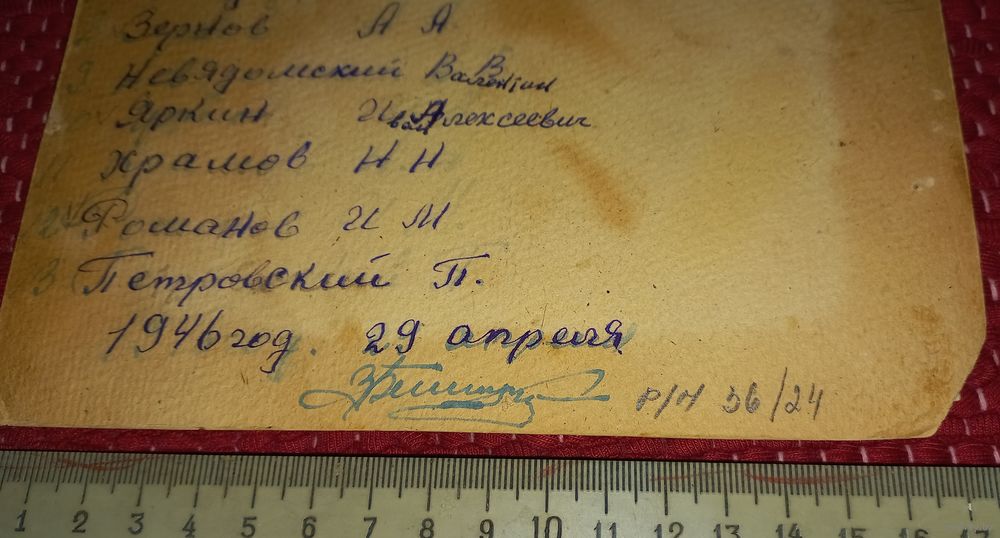 Зернов А А
9 Невядомский В В Валентин
Яркин И А Иван Алексеевич
Храмов Н Н
Романов И М
3 Петровский П.
1946 год. 29 апреля
Р/Н 36/24
1 2 3 4 5 6 7 8 9 10 11 12 13 14 15 16 17